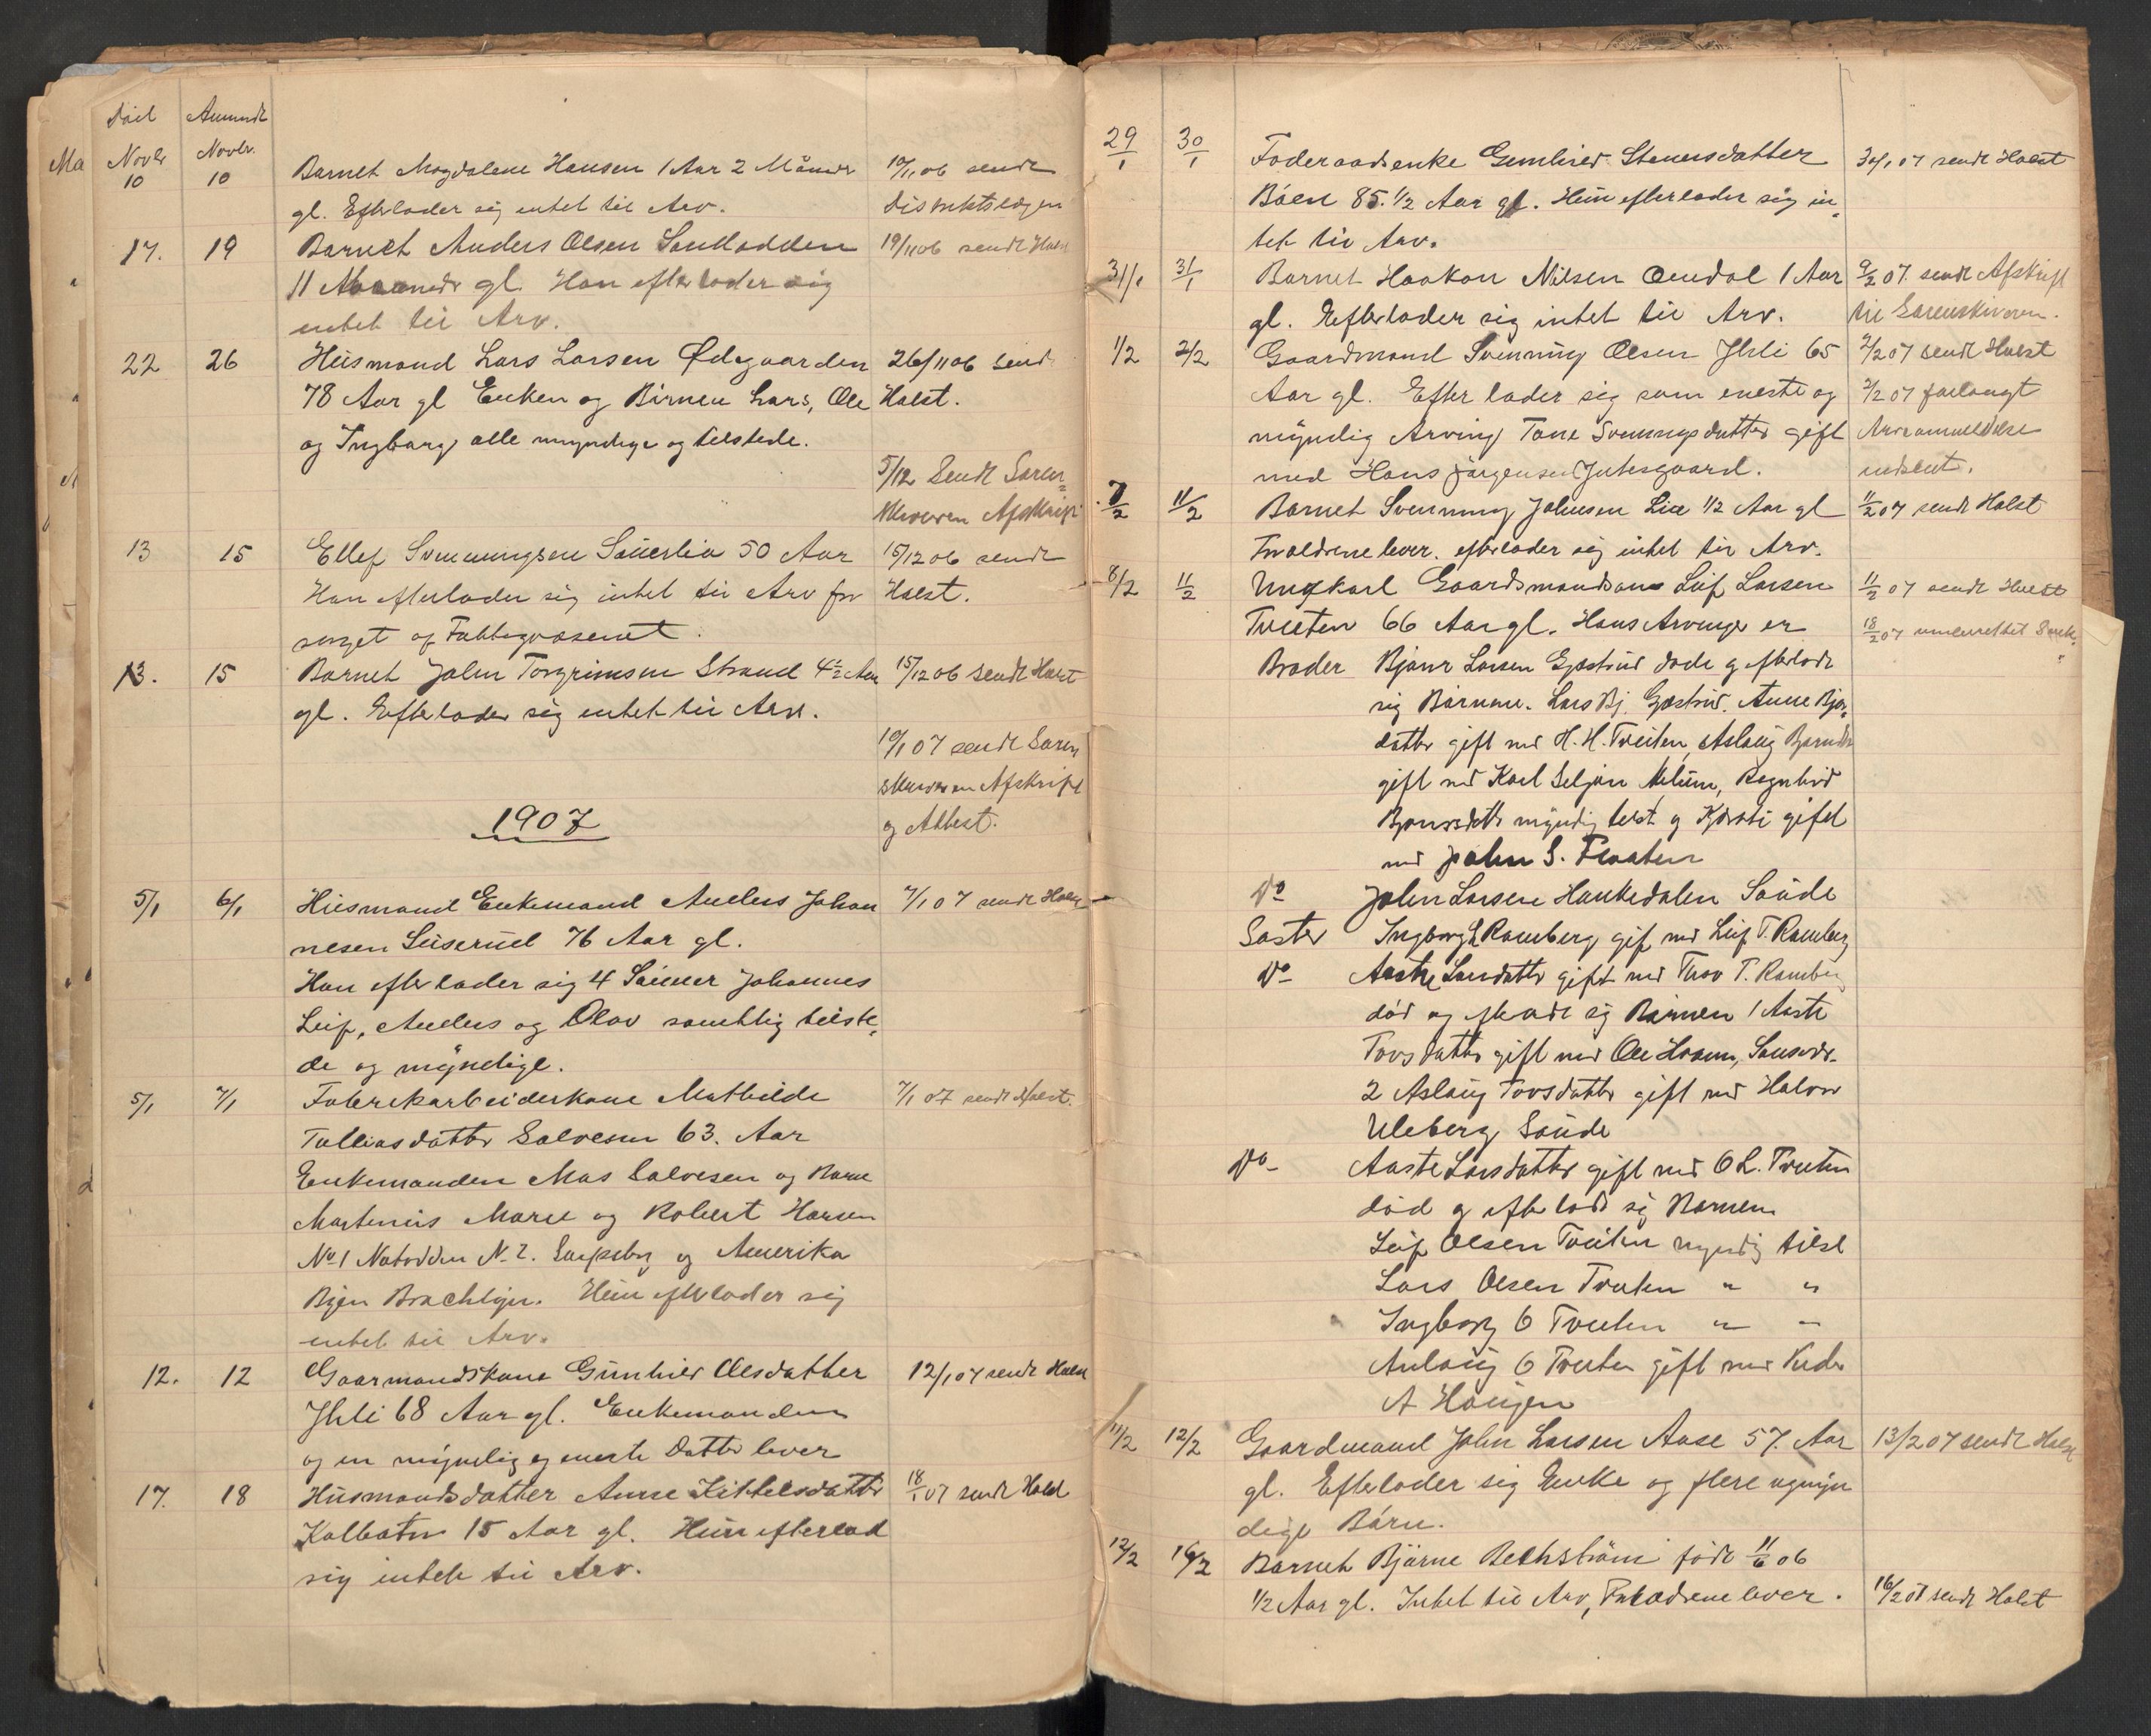 Død Anmeldt
Novbr Novbr.
10 10 Barnet Magdalene Hansen 1 Aar 2 Måneder 10/11 06 sendt
gl. Efterlader sig intet til Arv. Distriktslægen
17. 19 Barnet Anders Olsen 19/11 06 sendt Holst
11 Maaneder gl. Han efterlader sig
intet til Arv.
22 26 Husmand Lars Larsen Ødegaarden 26/11 06 sendt
78 Aar gl Enken og Børnene Lars, Ole Holst.
og Ingborg alle myndige og tilstede.
5/12 Sendt Soren-
skriveren Afskrift
13 15 Ellef Svenningsen Sauerlia 50 Aar 15/12 06 sendt
Han efterlader sig intet til Arv for Holst.
sørget af Fattigvæsenet.
13. 15 Barnet John Torgrimsen Strand 4 1/2 Aar 15/12 06 sendt Holst
gl. Efterlader sig intet til Arv.
10/1 07 sendt Soren
skriveren Afskrift
1907
og Attest.
5/1 6/1 Husmand Enkemand Anders Johan 7/1 07 sendt Holst
nesen 76 Aar gl.
Han efterlader sig 4 Sønner Johannes
Leif, Anders og Olav samtlig tilste-
de og myndige.
5/1 7/1 Fabrikarbeiderkone Mathilde 7/1 07 sendt Holst.
Tolliasdatter Salvesen 63. Aar
Enkemanden Mas Salvesen og Børn
Martinius Marie og Robert Hansen
No 1 Notodden N. 2. Sarpsborg og Amerika
Hun efterlader sig
intet til Arv.
12. 12 Gaarmandskone Gunhild Olsdatter 12/1 07 sendt Holst
Jhli 68 Aar gl. Enkemanden
og en myndig og eneste Datter lever
17. 18 Husmandsdatter Anne Kittelsdatter 18/1 07 sendt Holst
15 Aar gl. Hun efterlod
sig intet til Arv.
29/1 30/1 Føderaadsenke Gunhild Stenersdatter 30/1 07 sendt Holst
Bøen 85. 1/2 Aar gl. Hun efterlader sig in-
tet til Arv.
31/1 31/1 Barnet Haakon Nilsen Omdal 1 Aar 9/2 07. sendt Afskrift
gl. Efterlader sig intet til Arv. til Sorenskriveren.
1/2 2/2 Gaardmand Svenning Olsen Jhli 65 2/2 07 sendt Holst
Aar gl. Efterlader sig som eneste og 2/2 07 forlangt
myndig Arving Tone Svenningsdatter gift Arveanmeldelse
med Hans Jørgensen Jntesgaard. indsent.
7/2 11/2 Barnet Svenning Johnsen Lia 1/2 Aar gl 11/2 07 sendt Holst
Forældrene lever. efterlader sig intet til Arv.
8/2 11/2 Ungkarl Gaardsmandsøn Leif Larsen 11/2 07 sendt Holst
Tveiten 66 Aar gl. Hans Arvinger er 18/2 07
Broder Bjønn Larsen Gjestrud døde og efterlod
sig Børnene. Lars Bj. Gjestrud. Anne Bjøn-
datter gift med H. H. Tveiten, Aslaug Bjønsdtr
gift med Karl Seljan Melum, Ragnhild
Bjønsdattr myndig tilst og Kjersti gift
med John S. Flaaten
Do John Larsen Haukedalen Saude
Søster Ingborg L Ramberg gift med Leif T. Ramberg
Do Aaste Larsdatter gift med Tov T. Ramberg
død og efterlod sig Børnene 1 Aaste
Tovsdatter gift med Ole
2 Aslaug Tovsdatter gift med Halvor
Uleberg Saude
Do Aaste Larsdatter gift med O L. Tveiten
død og efterlod sig Børnene
Leif Olsen Tveiten myndig tilst
Lars Olsen Tveiten " "
Ingborg O Tveiten " "
Anlaug O Tveiten gift med
A Haugen
11/2 12/2 Gaardmand John Larsen Aase 57. Aar 13/2 07 sendt Holst
gl. Efterlader sig Enke og flere umyn
dige Børn.
12/2 16/2 Barnet Bjarne Bechstrøm født 11/6 06
1/2 Aar gl. Intet til Arv, Forældrene lever. 16/2 07 sendt Holst